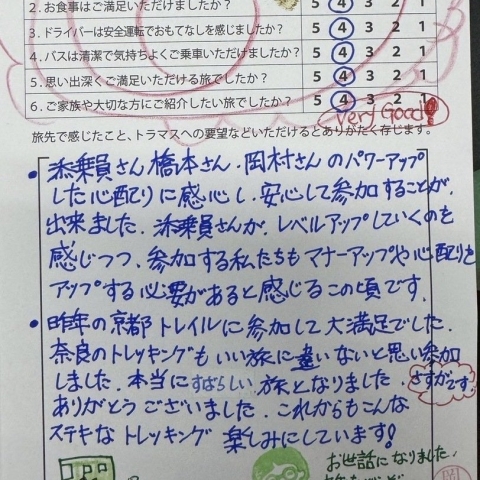 2.お食事はご満足いただけましたか? 5 4 3 2 1
3.ドライバーは安全運転でおもてなしを感じましたか? 5 4 3 2 1
4.バスは清潔で気持ちよくご乗車いただけましたか? 5 4 3 2 1
5.思い出深くご満足いただける旅でしたか? 5 4 3 2 1
6.ご家族や大切な方にご紹介したい旅でしたか? 5 4 3 2 1
Very Good!
旅先で感じたこと、トラマスへの要望などいただけるとありがたく存じます。
• 添乗員さん橋本さん.岡村さんのパワーアップ
した心配りに感心し.安心して参加することが.
出来ました.添乗員さんが、レベルアップしていくのを
感じつつ、参加する私たちもマナーアップや心配りを
アップする必要があると感じるこの頃です.
• 昨年の京都トレイルに参加して大満足でした.
奈良のトレッキングもいい旅に違いないと思い参加
しました.本当にすばらしい旅となりました.さすがです!
ありがとうございました.これからもこんな
ステキなトレッキング楽しみにしています!
お世話になりました.